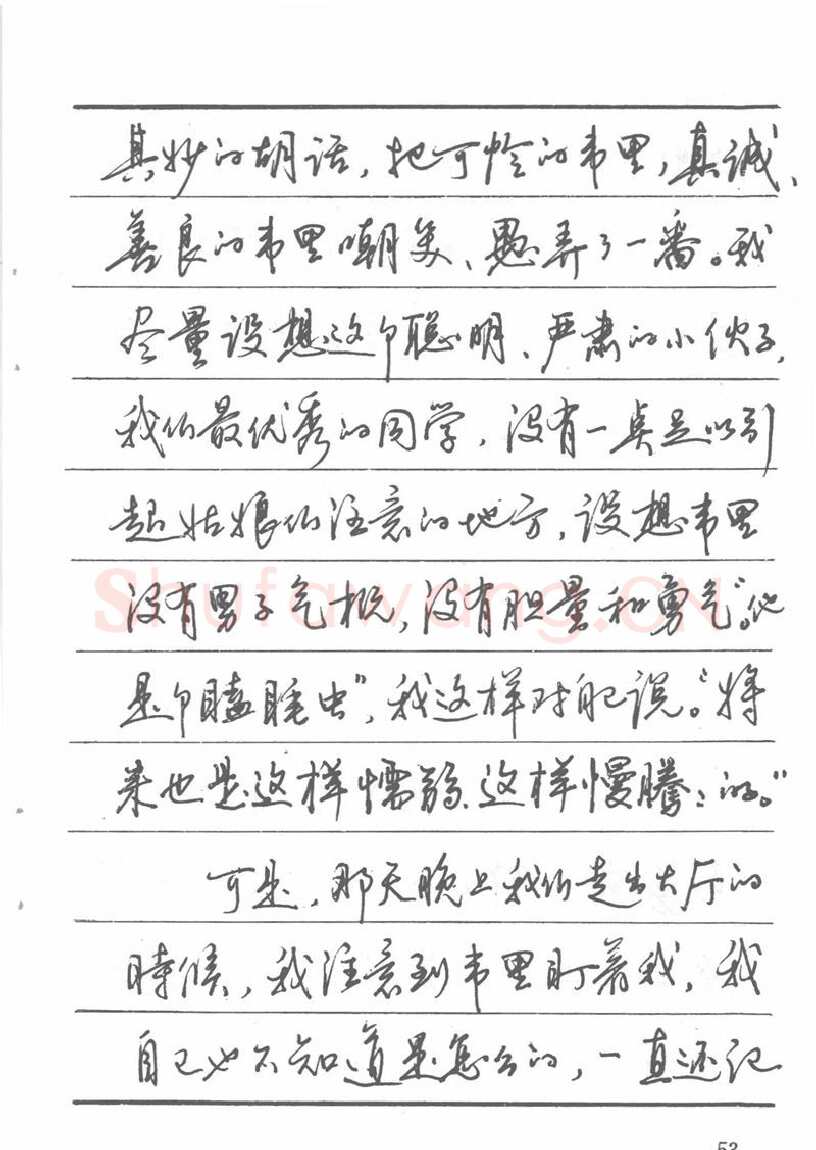 其妙的胡话，把可怜的韦里，真诚、
善良的韦里嘲笑、愚弄了一番。我
尽量设想这个聪明、严肃的小伙子，
我们最优秀的同学，没有一点足以引
起姑娘们注意的地方，设想韦里
没有男子气概，没有胆量和勇气。“他
是个瞌睡虫”，我这样对自己说。“将
来也是这样懦弱、这样慢腾：的。”
可是，那天晚上我们走出大厅的
時候，我注意到韦里盯着我，我
自己也不知道是怎么的，一直还记
Shufawang.CN
53